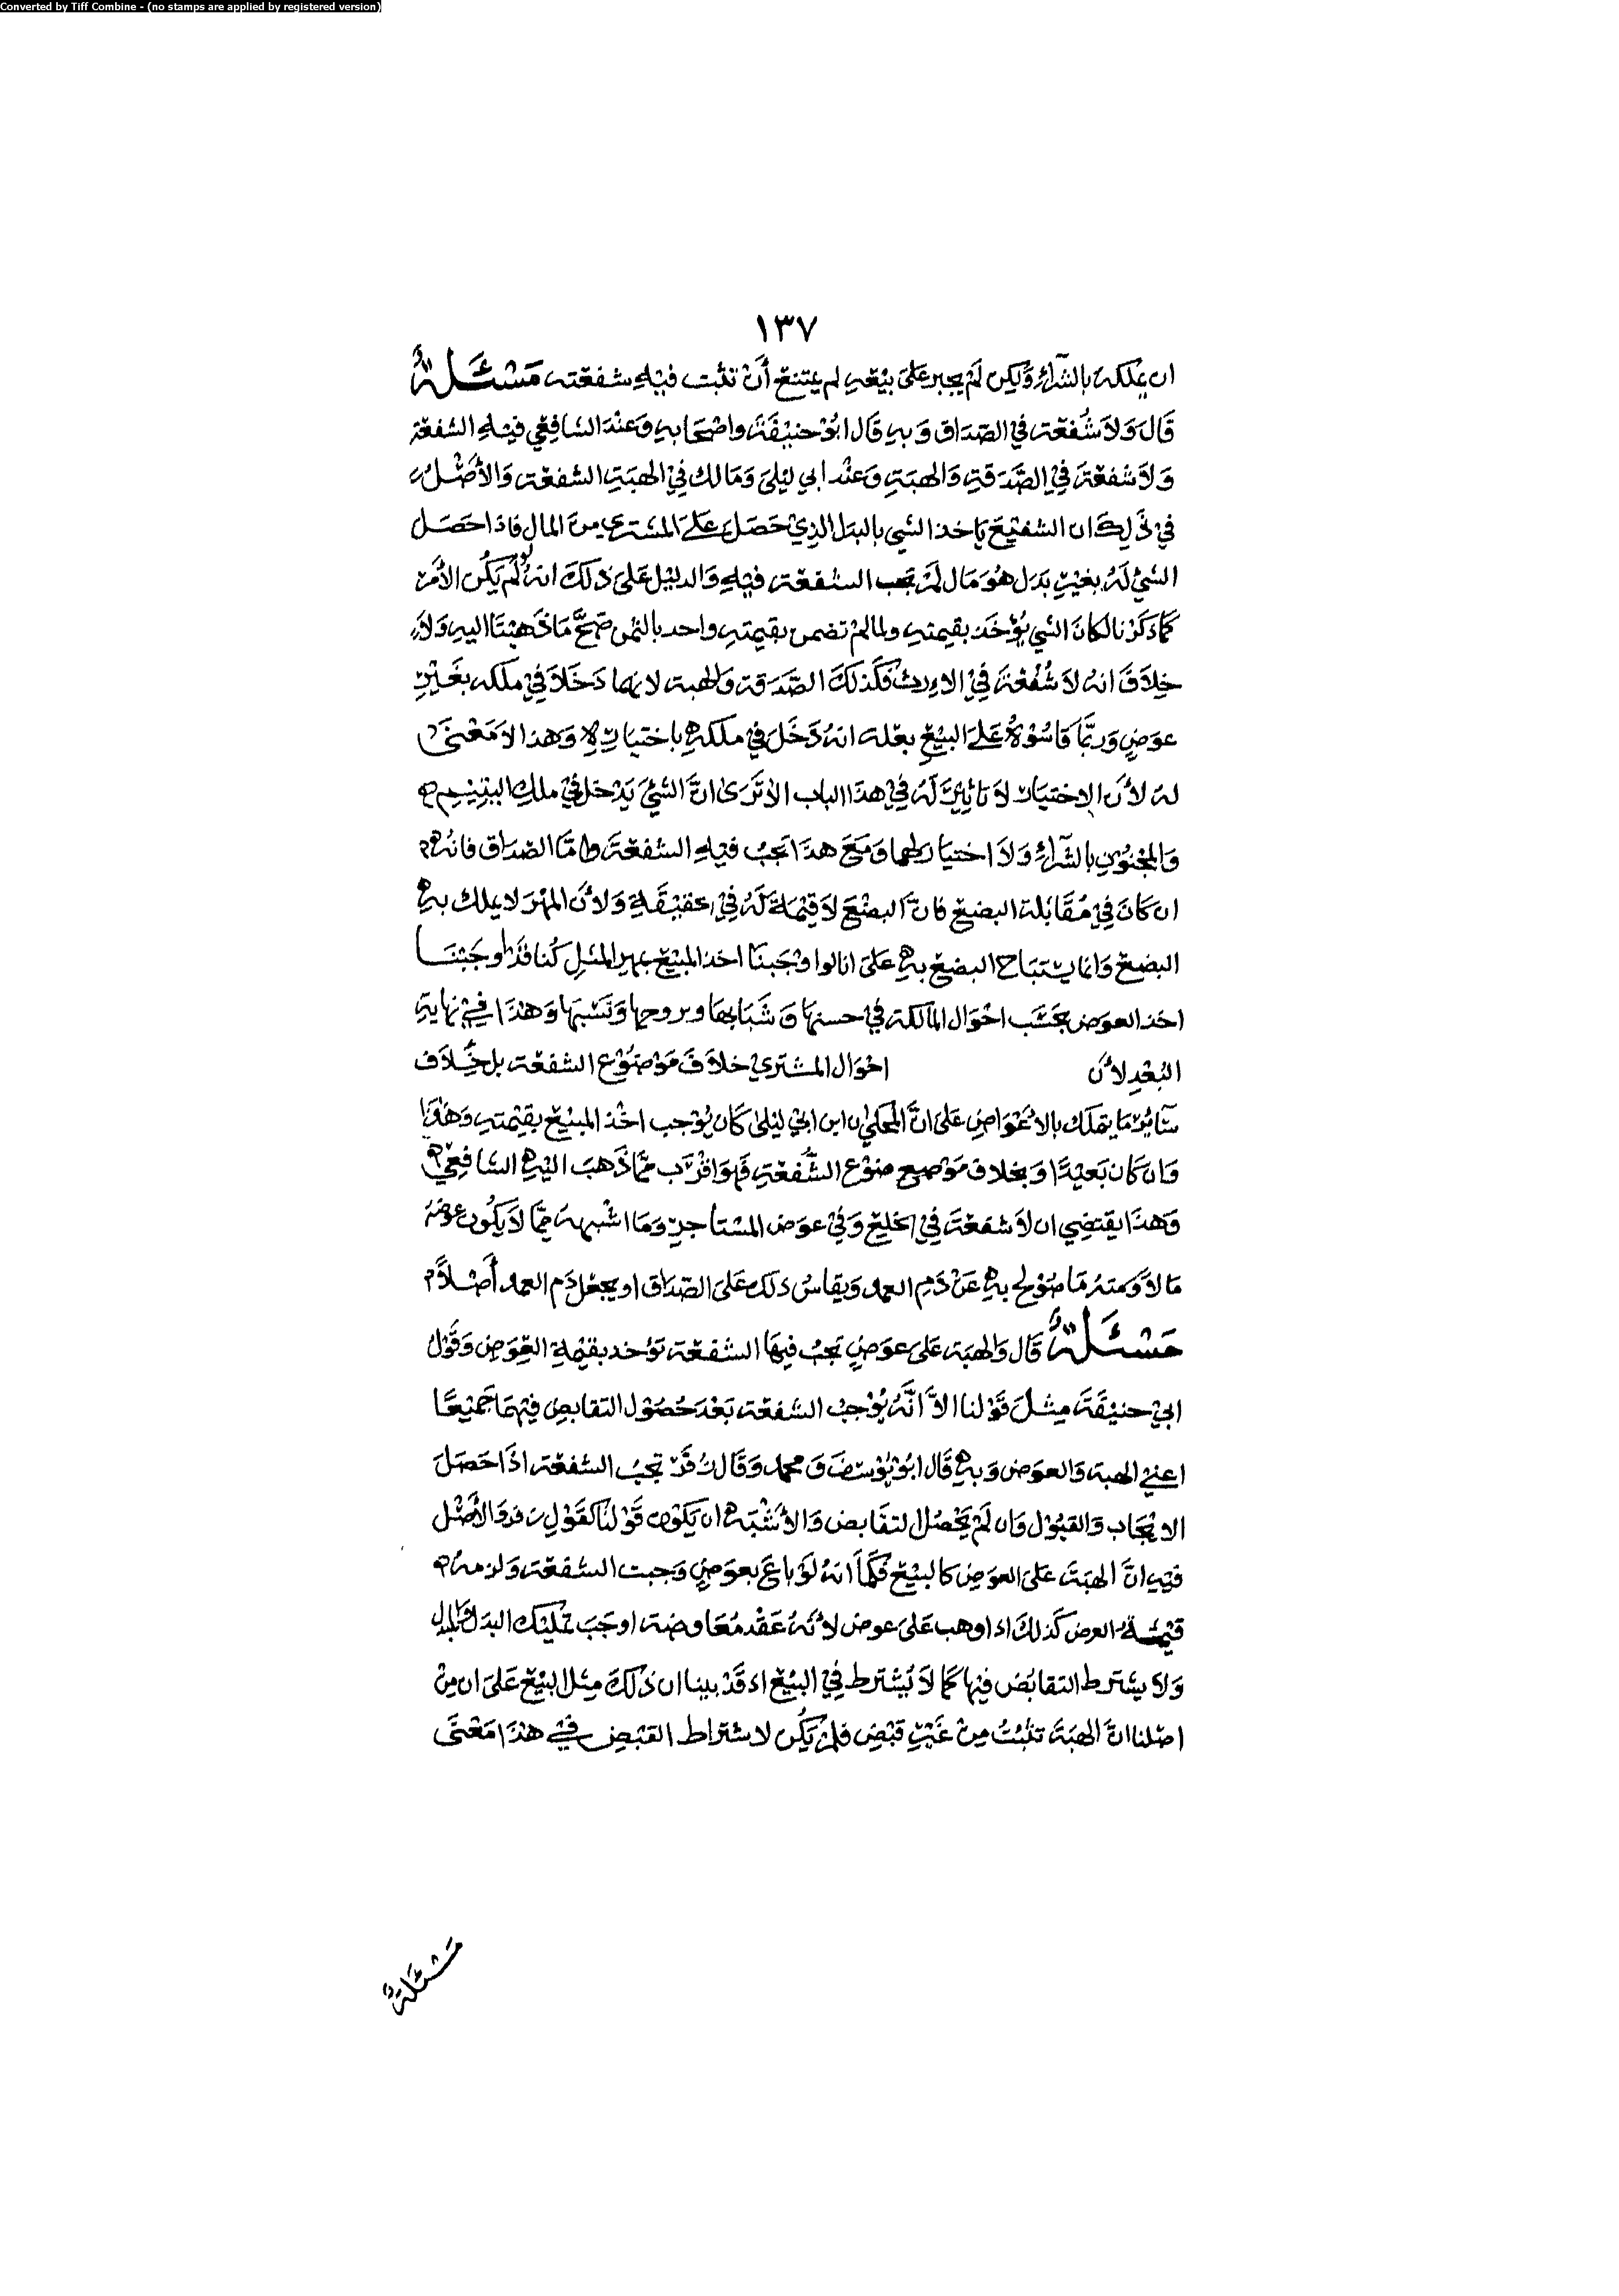 Converted by Tiff Combine - (no stamps are applied by registered version)
١٣٧
ان يملكه بالشراء ولكن لم يجبر على بيعه لم يمتنع أن تثبت فيه شفعته مسئلة
قال ولا شفعة في الصداق وبه قال ابو حنيفة واصحابه وعند الشافعي فيه الشفعة
ولا شفعة في الصدقة والهبة وعند ابي ليلى ومالك في الهبة الشفعة والأصل
في ذلك ان الشفيع ياخذ الشي بالبدل الذي حصل على المشتري من المال فاذا حصل
الشيء له بغير بدل هو مال لم تجب الشفعة فيه والدليل على ذلك انه لو لم يكن الأمر
كما ذكرنا لكان الشي يؤخذ بقيمته ولما لم تضمن بقيمته واحد بالثمن صح ما ذهبنا اليه ولا
خلاف انه لا شفعة في الارث فكذلك الصدقة والهبة لانهما دخلا في ملكه بغير
عوض وربما قاسوه على البيع بعلة انه دخل في ملكه باختياره وهذا لا معنى
له لأن الاختيار لا تاثير له في هذا الباب الا ترى ان الشيء يدخل في ملك اليتيم
والمجنون بالشراء ولا اختيار لهما ومع هذا تجب فيه الشفعة واما الصداق فانه
ان كان في مقابلة البضع فان البضع لا قيمة له في الحقيقة ولأن المهر لا يملك به
البضع وانما يستباح البضع به على انا لو اوجبنا اخذ المبيع بمهر المثل كنا قد اوجبنا
اخذ العوض بحسب احوال المالكة في حسنها وشبابها وبروحها ونسبها وهذا في نهاية
البعد لأن احوال المشتري خلاف موضوع الشفعة بل خلاف
سائر ما يتملك بالأعواض على ان المحكي ان ابن ابي ليلى كان يوجب اخذ المبيع بقيمته وهذا
وان كان بعيدا وبخلاف موضع ضوع الشفعة فهو اقرب مما ذهب اليه الشافعي
وهذا يقتضي ان لا شفعة في الخلع وفي عوض المستاجر وما اشبهه مما لا يكون عوضه
مالا ومنه ما صولح به عن دم العمد ويقاس ذلك على الصداق او يجعل دم العمد أصلا
مسئلة قال والهبة على عوض تجب فيها الشفعة تؤخذ بقيمة العوض وقول
ابي حنيفة مثل قولنا الا أنه يوجب الشفعة بعد حصول التقابض فيهما جميعا
اعني الهبة والعوض وبه قال ابو يوسف ومحمد وقال زفر تجب الشفعة اذا حصل
الايجاب والقبول وان لم يحصل التقابض والأشبه ان يكون قولنا كقول زفر والأصل
فيه ان الهبة على العوض كالبيع فكما انه لو باع بعوض وجبت الشفعة ولزمه
قيمة العرض كذلك اذا وهب على عوض لأنه عقد معاوضة اوجب تمليك البدل بالبدل
ولا يشترط التقابض فيها كما لا يشترط في البيع اذ قد بينا ان ذلك مثل البيع على ان من
اصلنا ان الهبة تثبت من غير قبض فلم يكن لاشتراط القبض في هذا معنى
مسئلة